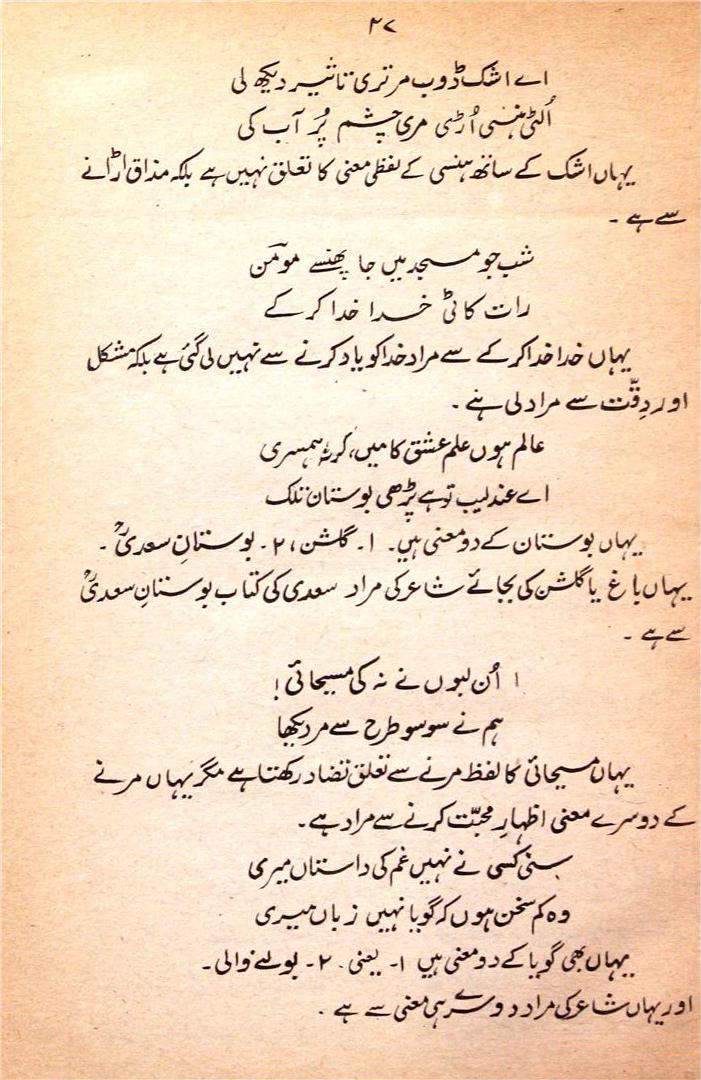 ۲۷
اے اشک ڈوب مر تری تاثیر دیکھ لی
اُلٹی ہنسی اُڑی مری چشم پُر آب کی
یہاں اشک کے ساتھ ہنسی کے لفظی معنی کا تعلق نہیں ہے بلکہ مذاق اڑانے
سے ہے ۔
شب جو مسجد میں جا پھنسے مومنؔ
رات کاٹی خدا خدا کر کے
یہاں خدا خدا کر کے سے مراد خدا کو یاد کرنے سے نہیں لی گئی ہے بلکہ مشکل
اور دِقّت سے مراد لی ہے ۔
عالم ہوں علم عشق کا میں، کر نہ ہمسری
اے عندلیب تو ہے پڑھی بوستان تلک
یہاں بوستان کے دو معنی ہیں۔ ۱۔ گلشن ، ۲۔ بوستانِ سعدیؒ ۔
یہاں باغ یا گلشن کی بجائے شاعر کی مراد سعدی کی کتاب بوستانِ سعدیؒ
سے ہے ۔
اُن لبوں نے نہ کی مسیحائی !
ہم نے سو سو طرح سے مر دیکھا
یہاں مسیحائی کا لفظ مرنے سے تعلق تضاد رکھتا ہے مگر یہاں مرنے
کے دوسرے معنی اظہارِ محبّت کرنے سے مراد ہے۔
سنی کسی نے نہیں غم کی داستاں میری
وہ کم سخن ہوں کہ گویا نہیں زباں میری
یہاں بھی گویا کے دو معنی ہیں ۱۔ یعنی ۔ ۲۔ بولنے والی۔
اور یہاں شاعر کی مراد دوسرے ہی معنی سے ہے ۔